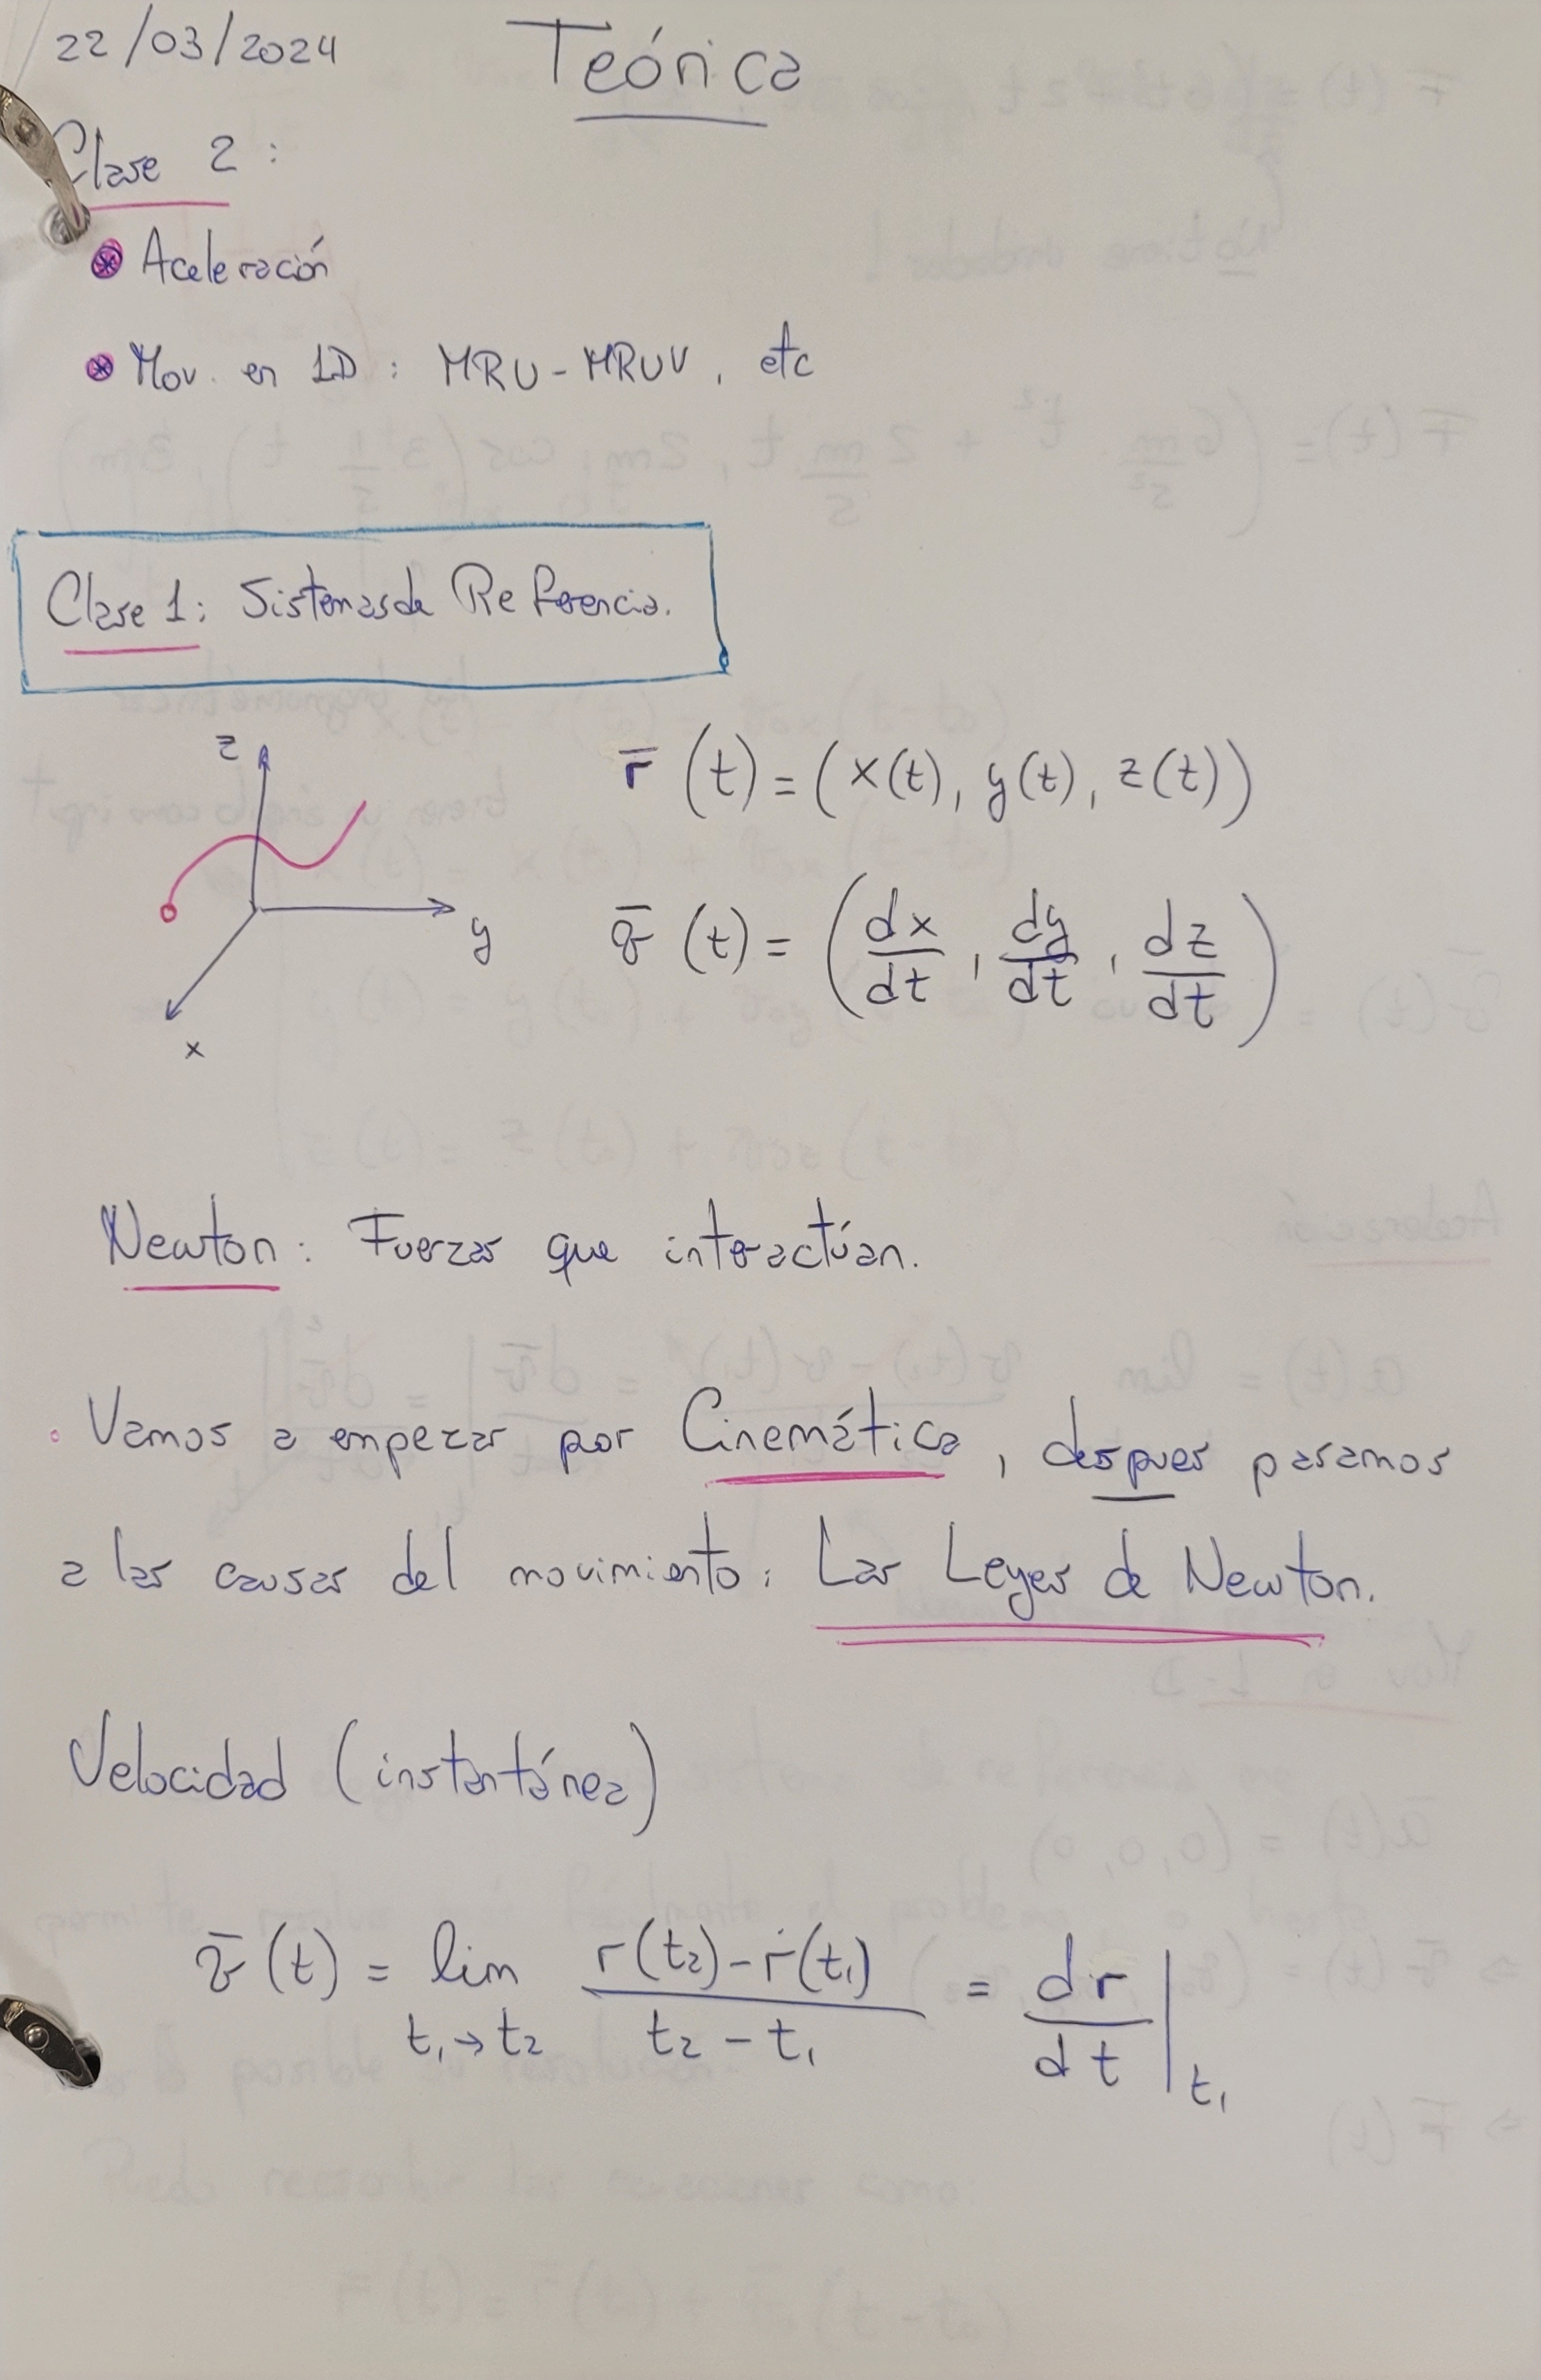 22/03/2024
Teórica
Clase 2:
Aceleración
Mov. en 1D: MRU-MRUV, etc
Clase 1: Sistemas de Referencia.
z
y
x
r̄ (t) = (x(t), y(t), z(t))
v̄ (t) = (dx/dt, dy/dt, dz/dt)
Newton: Fuerzas que interactúan.
Vamos a empezar por Cinemática, despues pasamos
a las causas del movimiento: Las Leyes de Newton.
Velocidad (instantánea)
v̄ (t) = lim t₁→t₂ r(t₂)-r(t₁) / t₂-t₁ = dr/dt |t₁